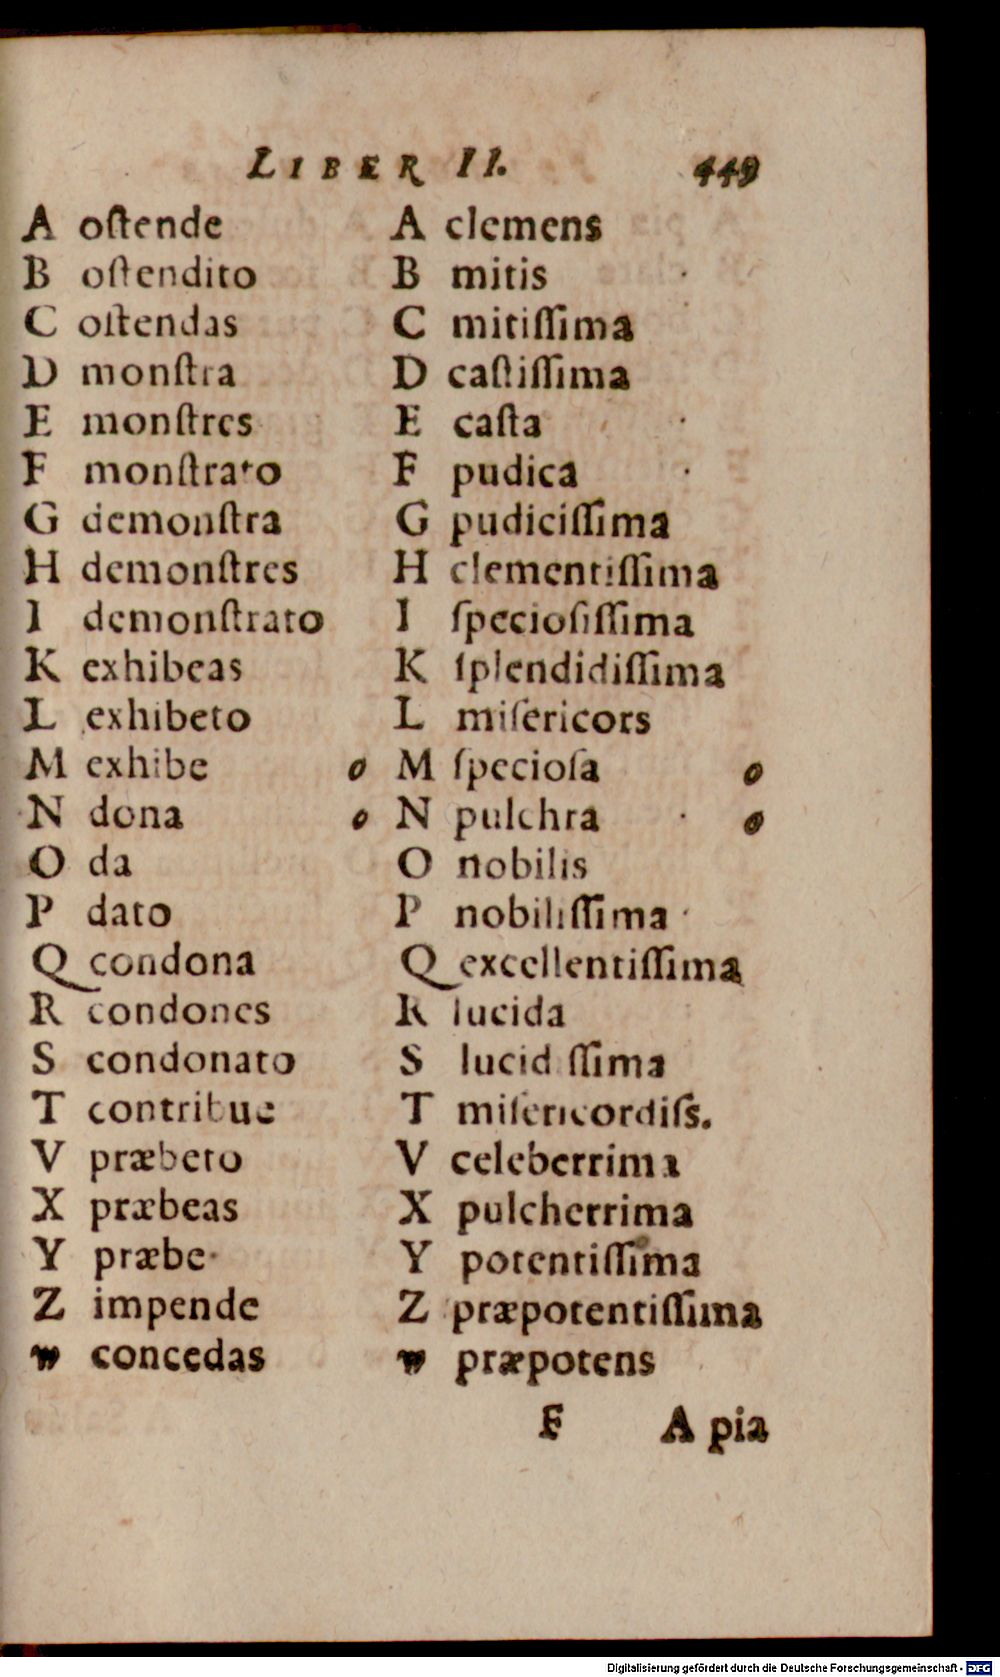 LIBER II. 449
A oſtende
B oſtendito
C oſtendas
D monſtra
E monſtres
F monſtrato
G demonſtra
H demonſtres
I demonſtrato
K exhibeas
L exhibeto
M exhibe o
N dona o
O da
P dato
Q condona
R condones
S condonato
T contribue
V præbeto
X præbeas
Y præbe
Z impende
w concedas
A clemens
B mitis
C mitiſſima
D caſtiſſima
E caſta
F pudica
G pudiciſſima
H clementiſſima
I ſpecioſiſſima
K ſplendidiſſima
L miſericors
M ſpecioſa o
N pulchra o
O nobilis
P nobiliſſima
Q excellentiſſima
R lucida
S lucid ſſima
T miſericordiſs.
V celeberrima
X pulcherrima
Y potentiſſima
Z præpotentiſſima
w præpotens
F A pia
Digitalisierung gefördert durch die Deutsche Forschungsgemeinschaft - DFG